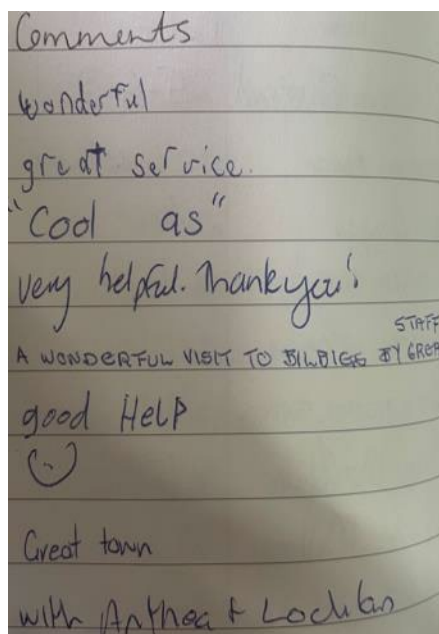 Comments
wonderful
great service.
"Cool as"
very helpful. Thankyou!
STAFF
A WONDERFUL VISIT TO BY GREA
good Help
Great town
with Anthea + Lochlan